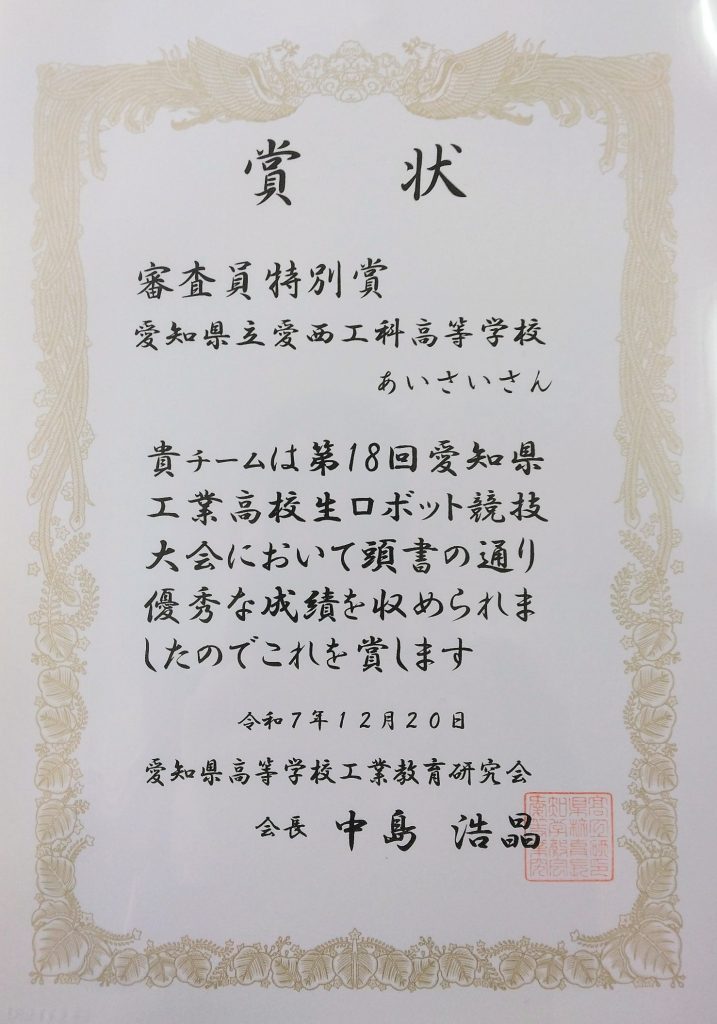 賞状
審査員特別賞
愛知県立愛西工科高等学校
あいさいさん
貴チームは第18回愛知県
工業高校生ロボット競技
大会において頭書の通り
優秀な成績を収められま
したのでこれを賞します
令和7年12月20日
愛知県高等学校工業教育研究会
会長 中島 浩晶